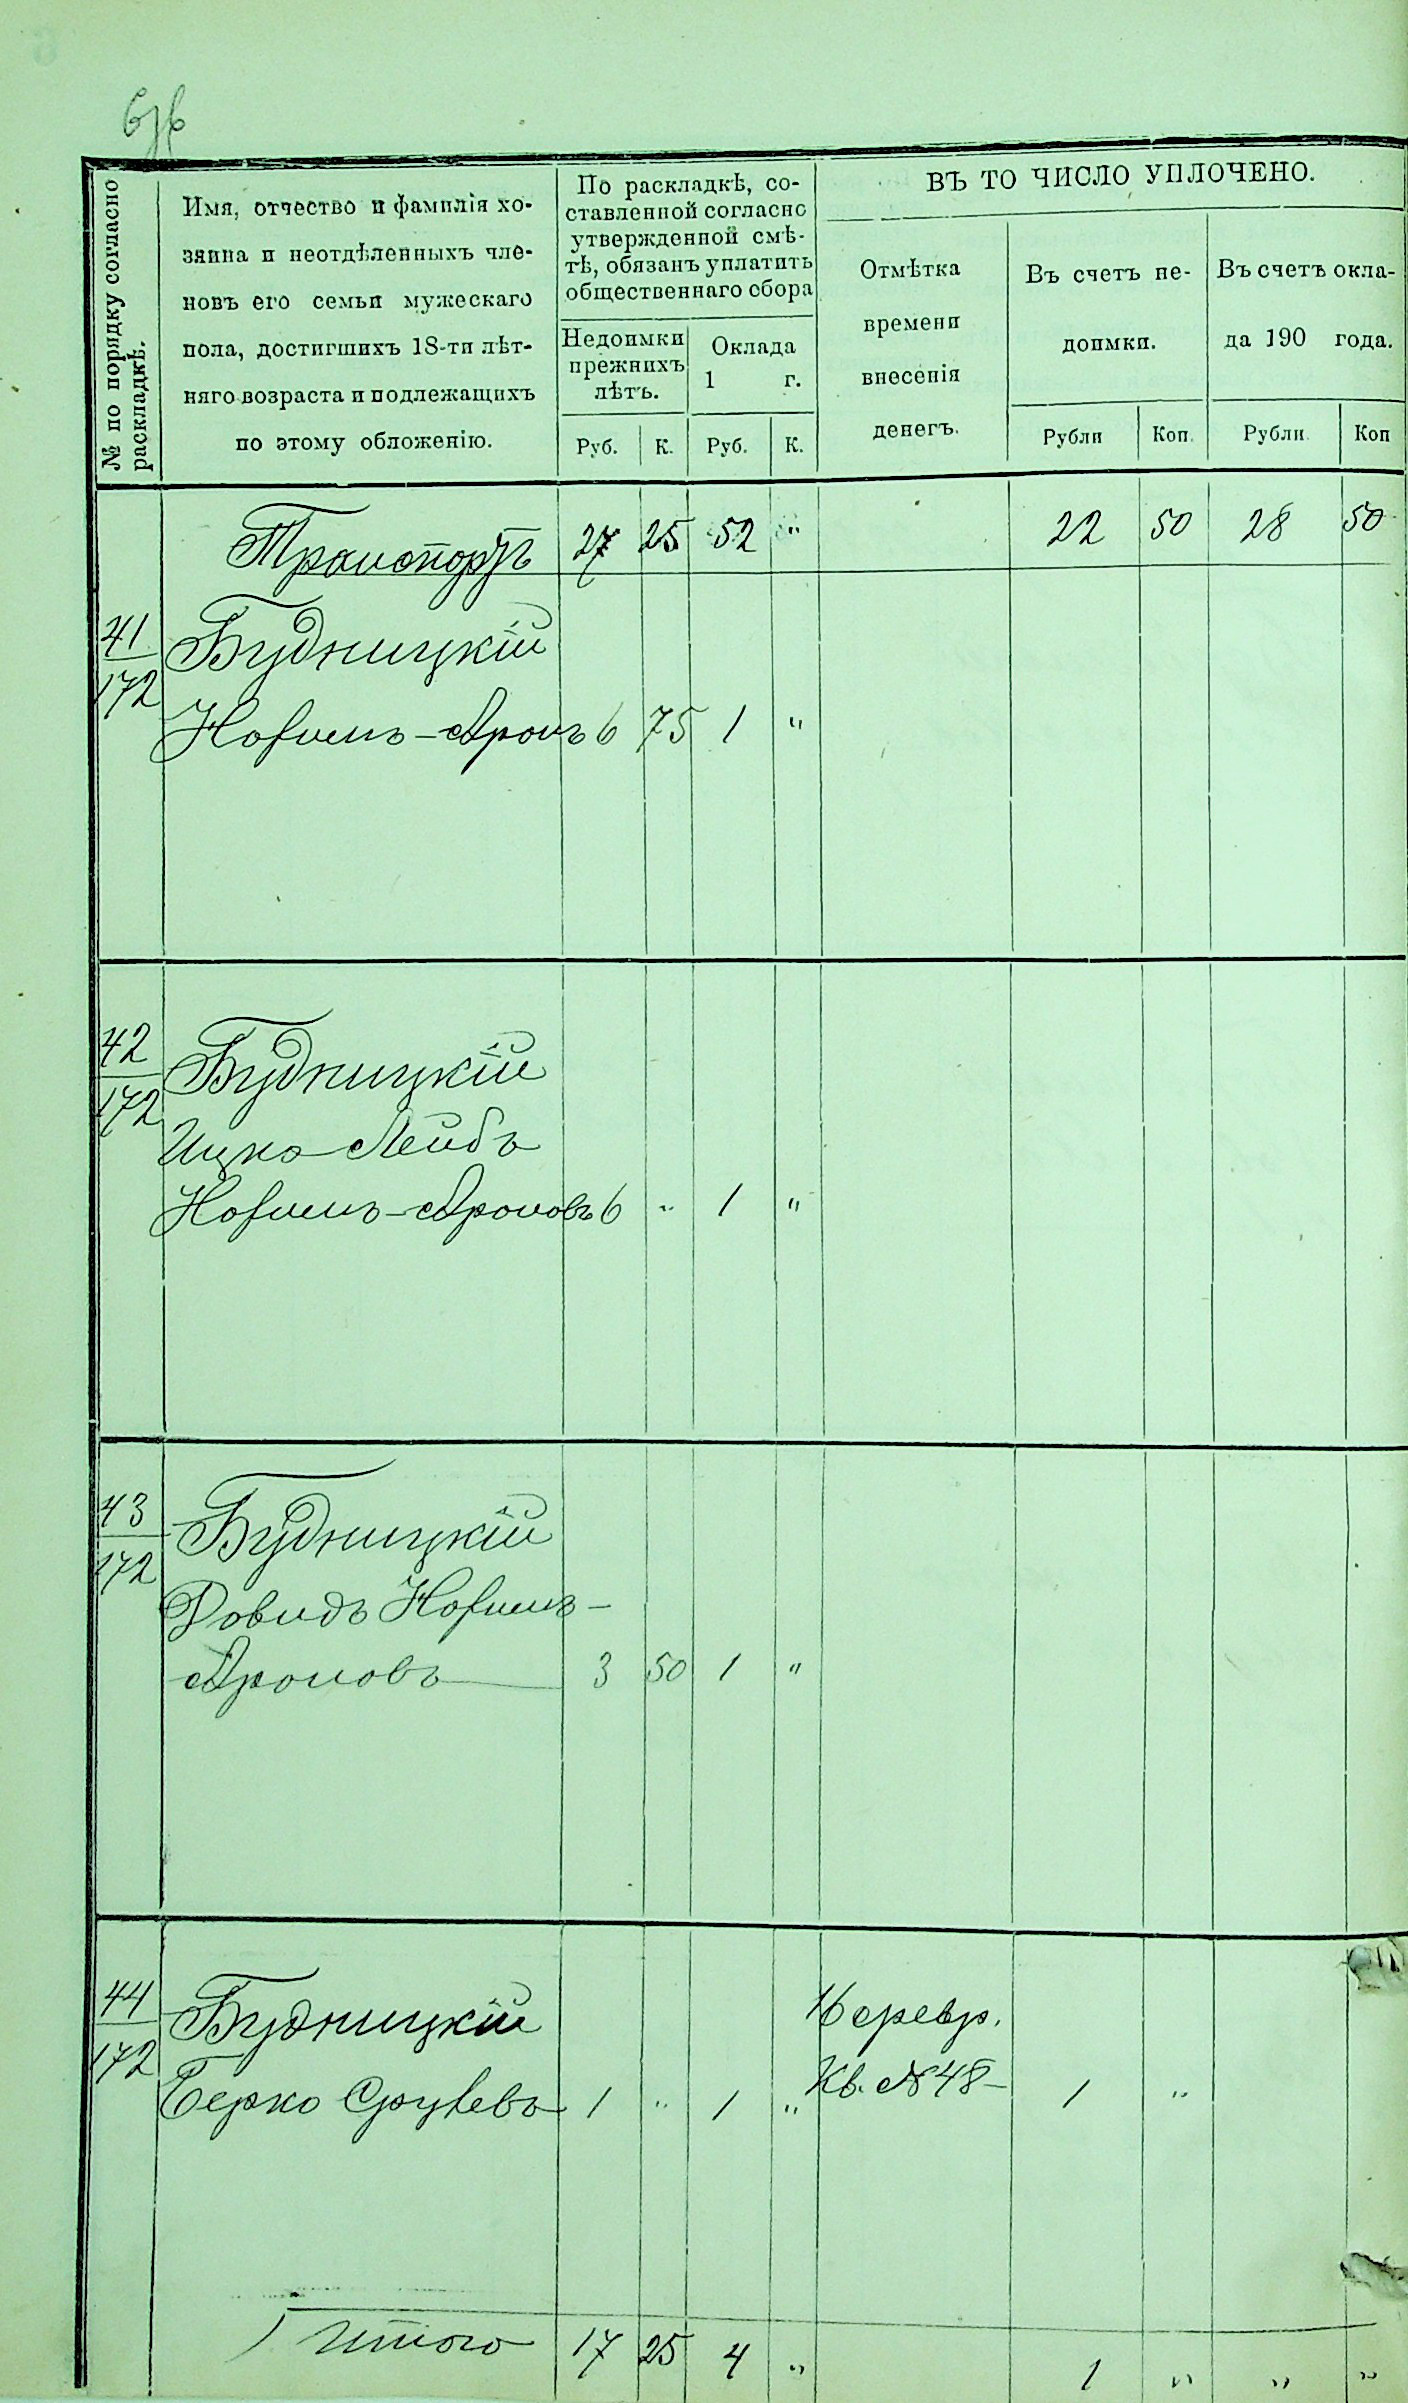 № по порядку согласно
раскладкѣ.
Имя, отчество и фамилія хо-
зяина и неотдѣленныхъ чле-
новъ его семьи мужескаго
пола, достигшихъ 18-ти лѣт-
няго возраста и подлежащихъ
по этому обложенію.
По раскладкѣ, со-
ставленной согласно
утвержденной смѣ-
тѣ, обязанъ уплатить
общественнаго сбора
Недоимки
прежнихъ
лѣтъ.
Оклада
1 г.
Руб. К. Руб. К.
ВЪ ТО ЧИСЛО УПЛОЧЕНО.
Отмѣтка
времени
внесенія
денегъ.
Въ счетъ не-
доимки.
Въ счетъ окла-
да 190 года.
Рубли Коп. Рубли Коп
Транспортъ 27 25 52 " 22 50 28 50
41
172
Будницкій
Нохимъ-Аронъ 6 75 1 "
42
172
Будницкій
Ицко Лейбъ
Нохимъ-Ароновъ 6 " 1 "
43
172
Будницкій
Довидъ Нохимъ-
Ароновъ 3 50 1 "
44
172
Будницкій
Берко Срулевъ 1 " 1 "
16 февр.
Кв. №48- 1 "
Итого 17 25 4 " 1 " " "